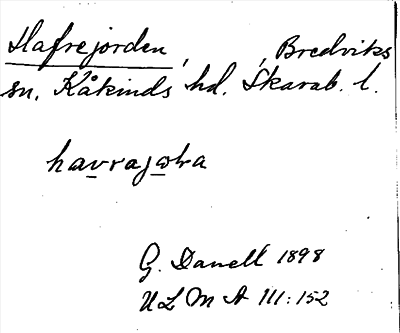 Hafrejorden, , Bredviks
sn. Kåkinds hd. Skarab. l.
havrajɷḷa
G. Danell 1898
ULMA 111:152